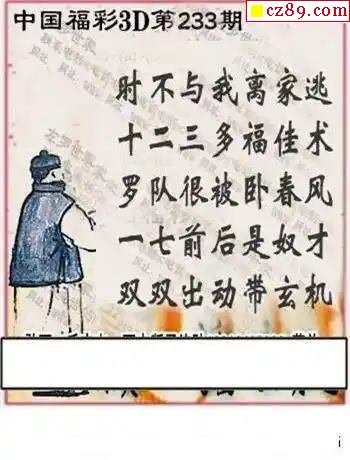 cz89.com
中国福彩3D第233期
时不与我离家逃
十二三多福佳术
罗队很被卧春风
一七前后是奴才
双双出动带玄机
i